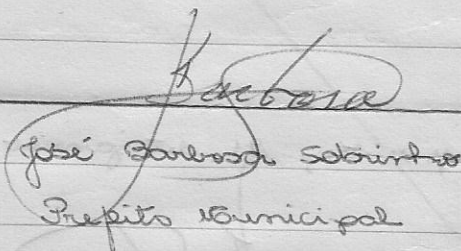 Barbosa
José Barbosa Sobrinho
Prefeito Municipal